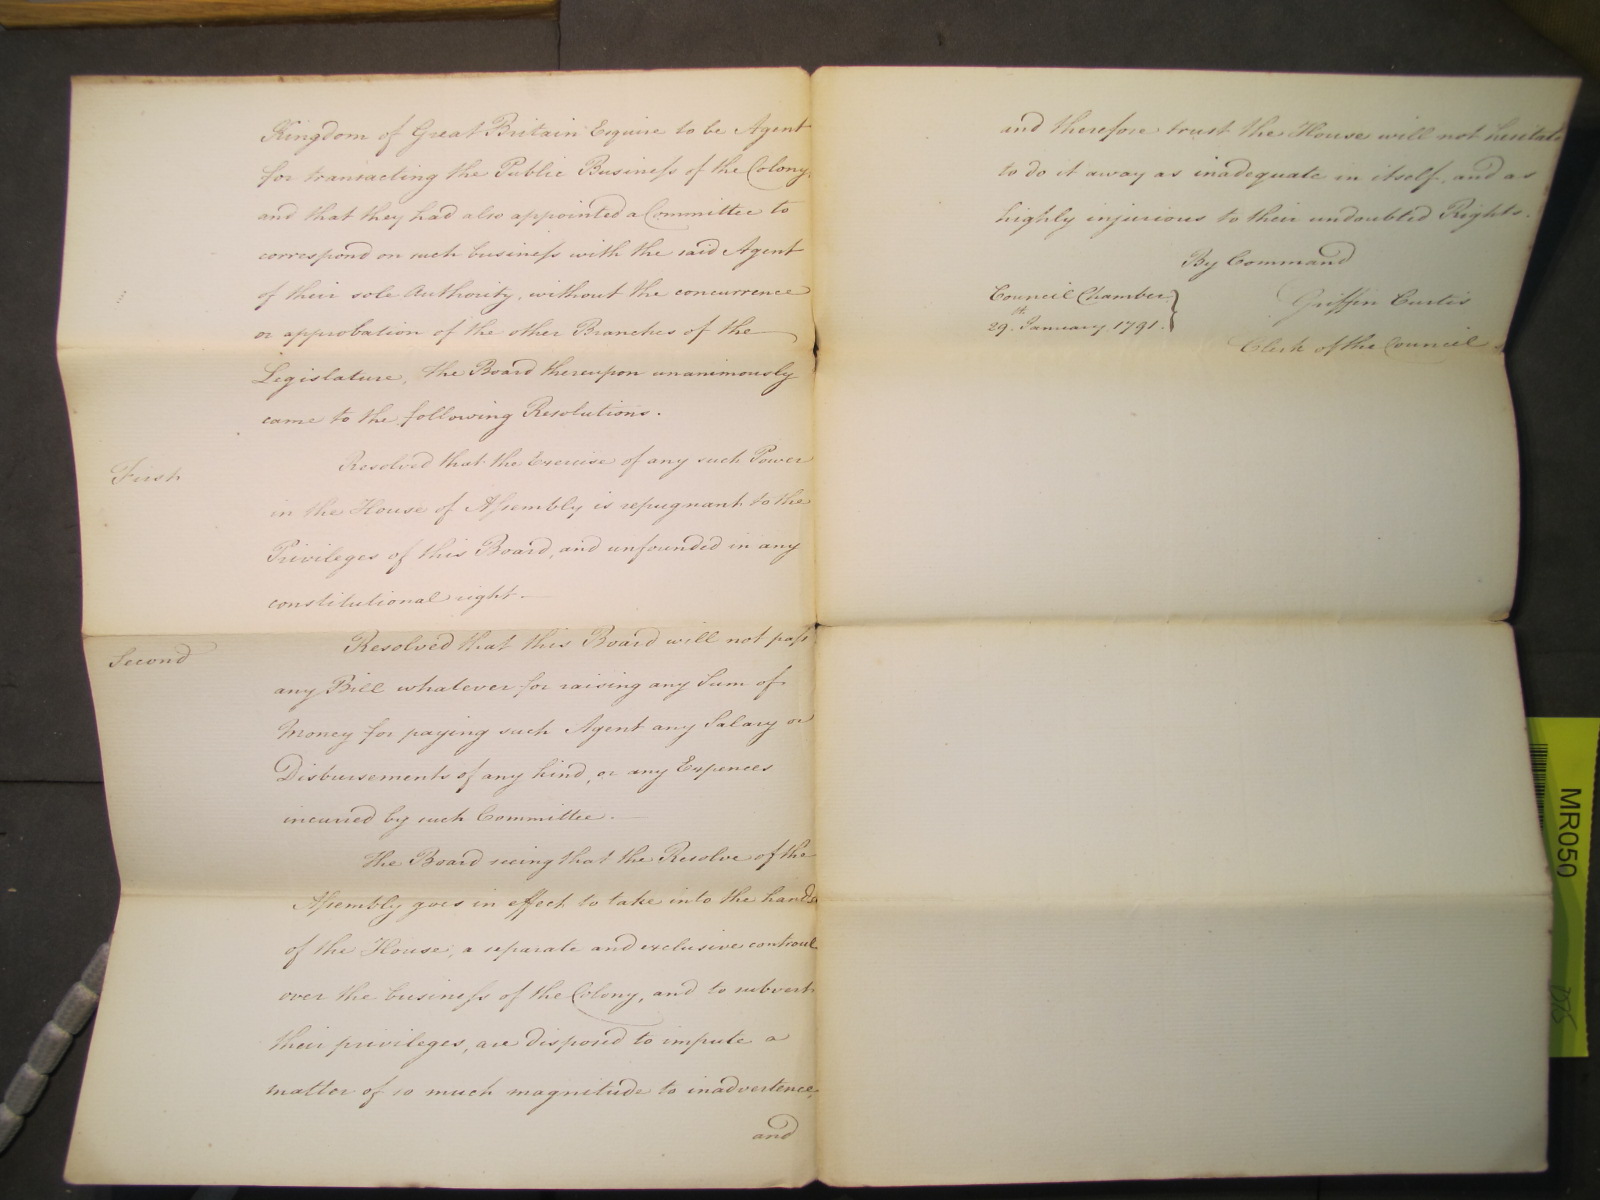 Kingdom of Great Britain Esquire to be Agent
for transacting the Public Business of the Colony,
and that they had also appointed a Committee to
correspond on such business with the said Agent
of their sole Authority, without the concurrence
or approbation of the other Branches of the
Legislature, the Board thereupon unanimously
came to the following Resolutions.
First
Resolved that the Exercise of any such Power
in the House of Assembly is repugnant to the
Privileges of this Board, and unfounded in any
constitutional right.
Second
Resolved that this Board will not pass
any Bill whatever for raising any Sum of
Money for paying such Agent any Salary or
Disbursements of any kind, or any Expences
incurred by such Committee.
The Board seeing that the Resolve of the
Assembly goes in effect to take into the hands
of the House, a separate and exclusive controul
over the business of the Colony, and to subvert
their privileges, are disposed to impute a
matter of so much magnitude to inadvertence,
and
and therefore trust the House will not hesitate
to do it away as inadequate in itself, and as
highly injurious to their undoubted Rights.
By Command
Council Chamber
29th January 1791.
Griffin Curtis
Clerk of the Council
MR050